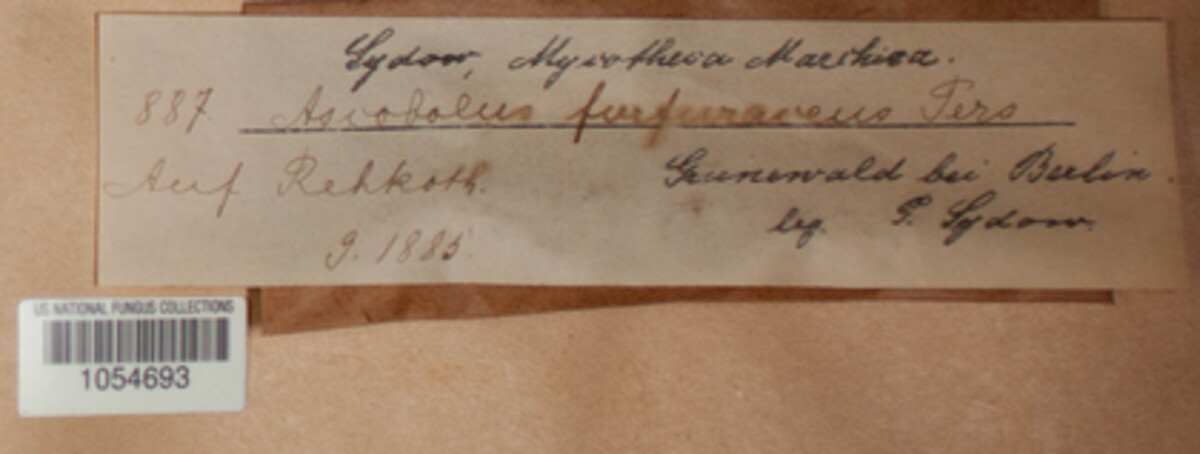 Sydow, Mycotheca Marchica.
887 Ascobolus furfuraceus Pers
Auf Rehkoth.
Grunewald bei Berlin.
9. 1885.
leg. P. Sydow.
US NATIONAL FUNGUS COLLECTIONS
1054693